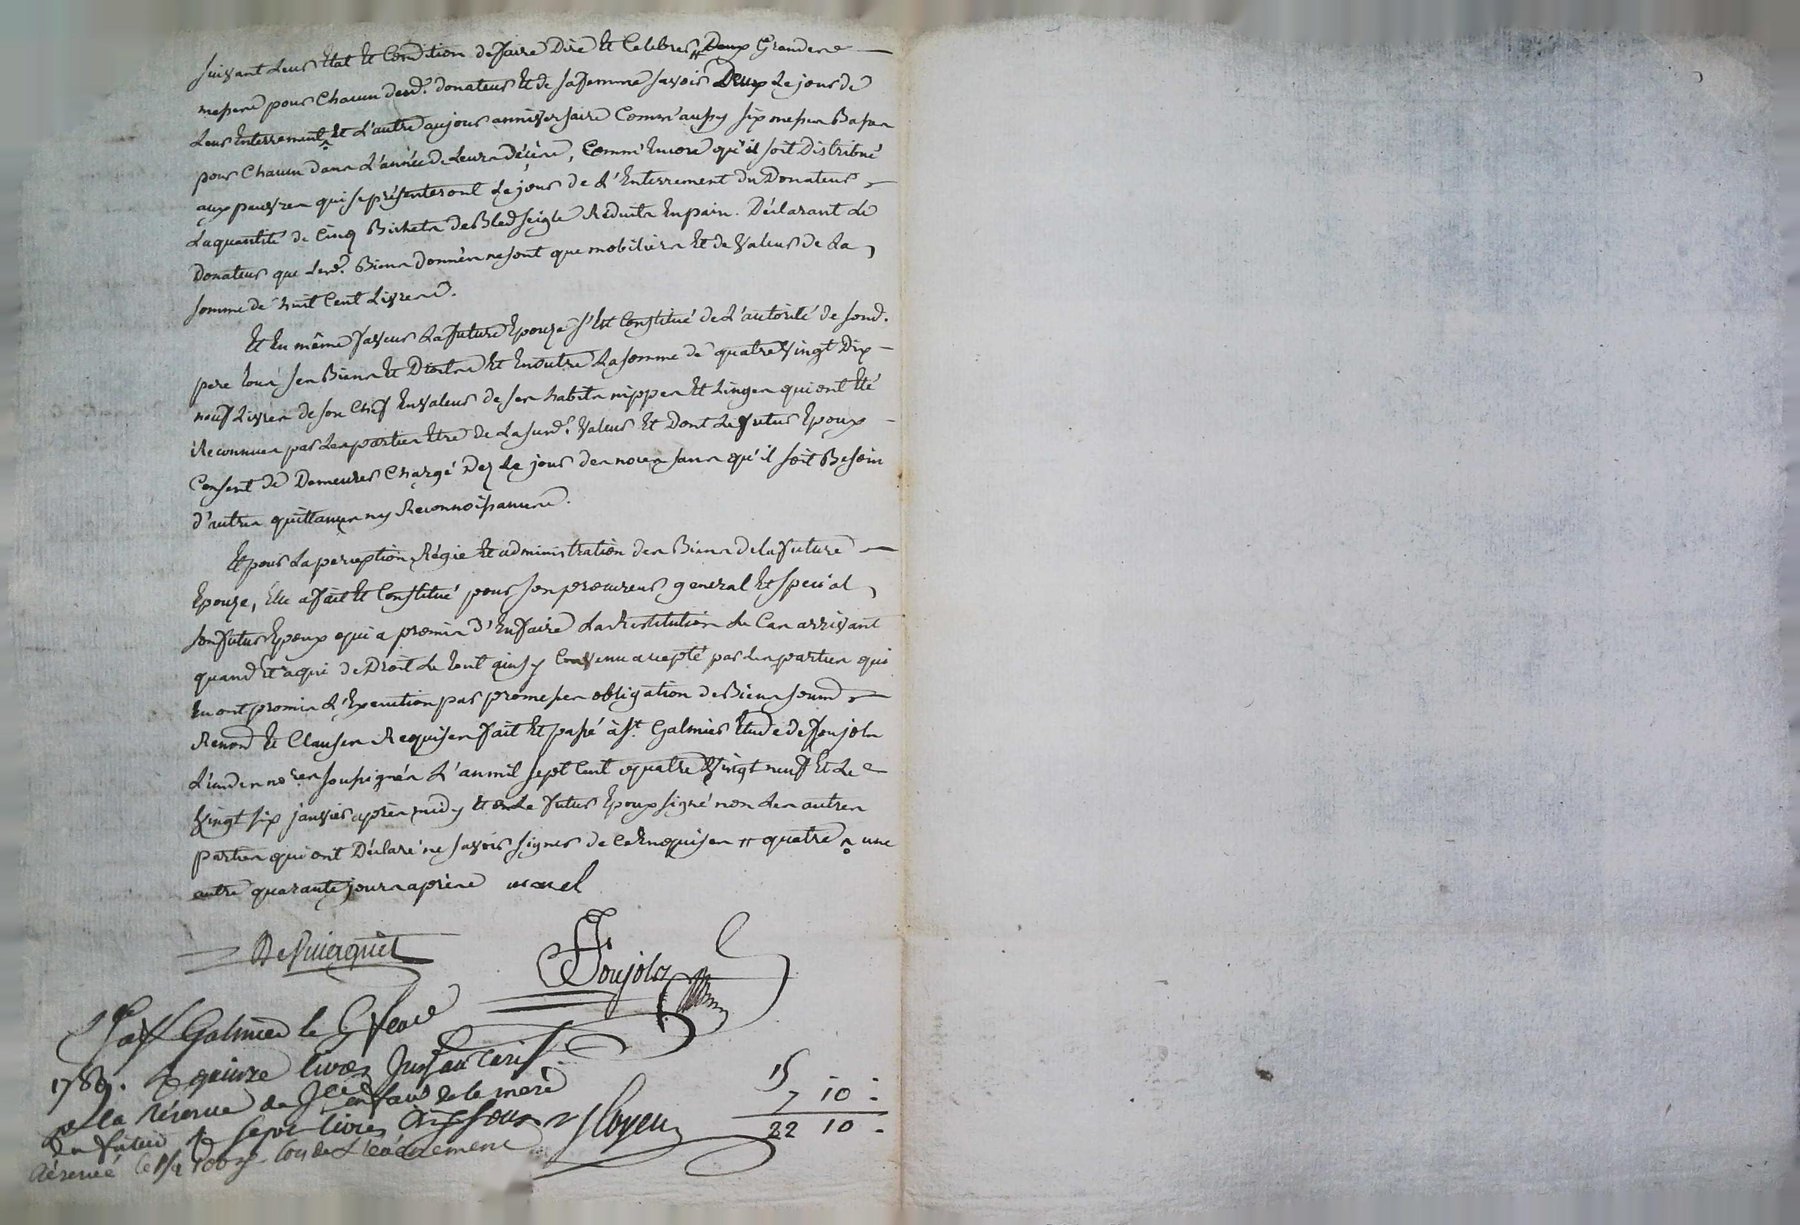 suivant Leur Etat Et Condition de faire Dire Et Celebrer " Deux Grandes
messes pour Chacun desd. donateur Et de sa femme savoir Deux Le jour de
Leur Enterrement Et L'autre au jour anniversaire Comm'aussy six messes Basses
pour Chacun dans L'année de Leurs décès, Comm'Encore qu'il soit Distribué
aux pauvres qui se présenteront Le jour de L'Enterrement du Donateur
La quantité de Cinq Bichets de Bled seigle Réduits En pain. Déclarant Le
Donateur que Lesd. Biens donnés ne sont que mobiliers Et de Valeur de La
somme de huit Cent Livres.
Et En même faveur La future Epouze s'Est Constitué de L'autorité de sond.
pere tous ses Biens Et Droits Et En outre La somme de quatre Vingt Dix
neuf Livres de son Chef En valeur de ses habits nippes Et Linges qui ont Eté
Reconnues par Les parties Etre de La susd. Valeur Et Dont Le futur Epoux
Consent de Demeurer Chargé Dez Le jour des noces sans qu'il soit Besoin
d'autres quittances ny Reconnoissances.
Et pour La perception Régie Et administration des Biens de la future
Epouze, Elle a fait Et Constitué pour son procureur general Et special
son futur Epoux qui a promis D'En faire La Restitution Le Cas arrivant
quand Et a qui de Droit Le tout ainsy Convenu accepté par Les parties qui
En ont promis L'Execution par promesses obligation de Biens soum.
Renon. Et Clauses Requises fait Et passé à St. Galmier Etude de foujols
L'un des nores soussignés L'an mil sept Cent quatre Vingt neuf Et Le
Vingt six janvier après midy Et Le futur Epoux signé non Les autres
parties qui ont Déclaré ne savoir signer de Ce Enquises " quatre une
autre quarante jours après
Foujols
St Galmier le
1789. Rç quinze livres
la réserve de
du futur Rç sept livres dix sous
réservé lors de L'événement
15
7 10 -
22 10 -